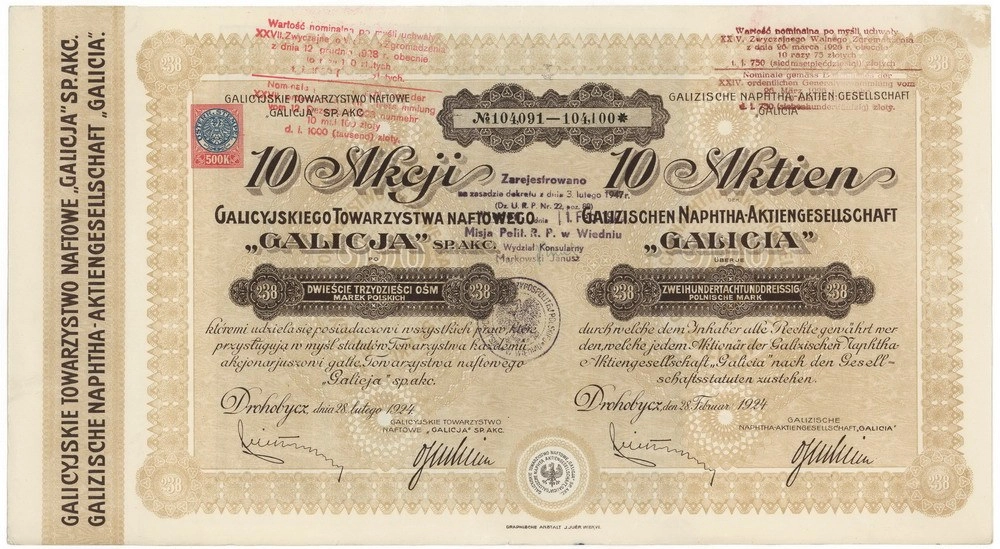 GALICYJSKIE TOWARZYSTWO NAFTOWE „GALICJA” SP. AKC.
GALIZISCHE NAPHTHA-AKTIENGESELLSCHAFT „GALICIA”
Wartość nominalna po myśli uchwały
XXVII. Zwyczajnego Zgromadzenia
z dnia 12 grudnia 1928 r. obecnie
12
nunmehr
10 mal 100 złoty
d. i. 1000 (tausend) złoty.
Wartość nominalna po myśli uchwały
XXIV. Zwyczajnego Walnego Zgromadzenia
z dnia 26 marca 1926 r. obecnie
10 razy 75 złotych
t. j. 750 (siedmset pięćdziesiąt) złotych
Nominale gemäss
XXIV. ordentlichen Generalversammlung vom
d. i. 750 złoty.
500K
GALICYJSKIE TOWARZYSTWO NAFTOWE
„GALICJA” SP. AKC.
№ 104,091—104,100*
GALIZISCHE NAPHTHA-AKTIEN-GESELLSCHAFT
„GALICIA”
10 Akcji
GALICYJSKIEGO TOWARZYSTWA NAFTOWEGO
„GALICJA” SP. AKC.
PO
238 DWIEŚCIE TRZYDZIEŚCI OŚM 238
MAREK POLSKICH
któremi udziela się posiadaczowi wszystkich praw, które
przysługują w myśl statutów Towarzystwa każdemu
akcjonarjuszowi galic. Towarzystwa naftowego
„Galicja” sp. akc.
Drohobycz, dnia 28 lutego 1924
GALICYJSKIE TOWARZYSTWO
NAFTOWE „GALICJA” SP. AKC.
Zarejestrowano
na zasadzie dekretu z dnia 3. lutego 1947 r.
(Dz. U. R. P. Nr. 22, poz. 88)
dnia
Misja Polit. R. P. w Wiedniu
Wydział Konsularny
Markowski Janusz
10 Aktien
DER
GALIZISCHEN NAPHTHA-AKTIENGESELLSCHAFT
„GALICIA”
ÜBER JE
238 ZWEIHUNDERTACHTUNDDREISSIG 238
POLNISCHE MARK
durch welche dem Inhaber alle Rechte gewährt wer
den, welche jedem Aktionär der Galizischen Naphtha-
Aktiengesellschaft „Galicia” nach den Gesell-
schaftsstatuten zustehen.
Drohobycz, den 28 Februar 1924
GALIZISCHE
NAPHTHA-AKTIENGESELLSCHAFT „GALICIA”
238
238
GRAPHISCHE ANSTALT J. JUER, WIEN.